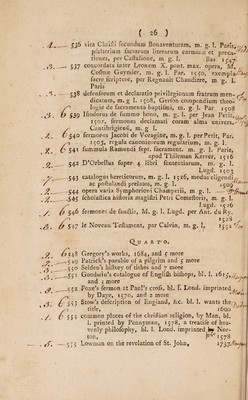 ( 26 )
536 vita Christi secundum Bonaventuram, m. g. l. Paris,
psalterium sacrarum literarum carmina et preca-
tiones, per Castalione, m g. l. Bas 1547
537 concordata inter Leonem X. pont. max. opera, M.
Cosme Guymier, m. g. l. Par. 1550, exempla
sacre scripture, per Regnault Chaudiere, m. g. l.
Paris
538 defensorum et declaratio privilegionum fratrum men-
dicatum, m. g. l. 1508, Gerson compendium theo-
logie de sacramentis baptismi, m. g. l. Par. 1508
6 539 Elindorus de summo bono, m. g. l. per Jean Petit,
1502, sermones declamati coram alma univers.
Cantibrigiensi, m. g. l.
6 540 sermones Jacobi de Voragine, m. g. l. per Petit, Par.
1503, regula canonicorum regularium, m. g. l.
6 541 summula Ramundi sept. sacrament. m. g. l. Paris,
apud Thileman Kerver, 1516
542 D'Orbellus super 4 libri sententiarum, m. g. l.
Lugd. 1503
543 catalogus hereticorum, m. g. l. 1516, modus eligendi
ac postulandi prelatos, m. g. l. 1509
544 opera varia Symphoriani Champerii, m. g. l.
545 scholastica historia magistri Petri Comestoris, m. g. l.
Lugd. 1526
6 546 sermones de sanctis, M. g. l. Lugd. per Ant. du Ry.
1528
6 547 le Noveau Testament, par Calvin, m. g. l. 1551
QUARTO.
6 548 Gregory's works, 1684, and 5 more
549 Patrick's parable of a pilgrim and 5 more
550 Selden's history of tithes and 7 more
551 Godwin's catalogue of English bishops, bl. l. 1615,
and 5 more
552 Foxe's sermon at Paul's cross, bl. l. Lond. imprinted
by Daye, 1570, and 2 more
553 Stow's description of England, &c. bl. l. wants the
title, 1600
554 common places of the christian religion, by Man, bl.
l. printed by Pennyman, 1578, a treatise of hea-
venly philosophy, bl. l. Lond. imprinted by Nor-
ton 1578
555 Lowman on the revelation of St. John, 1737